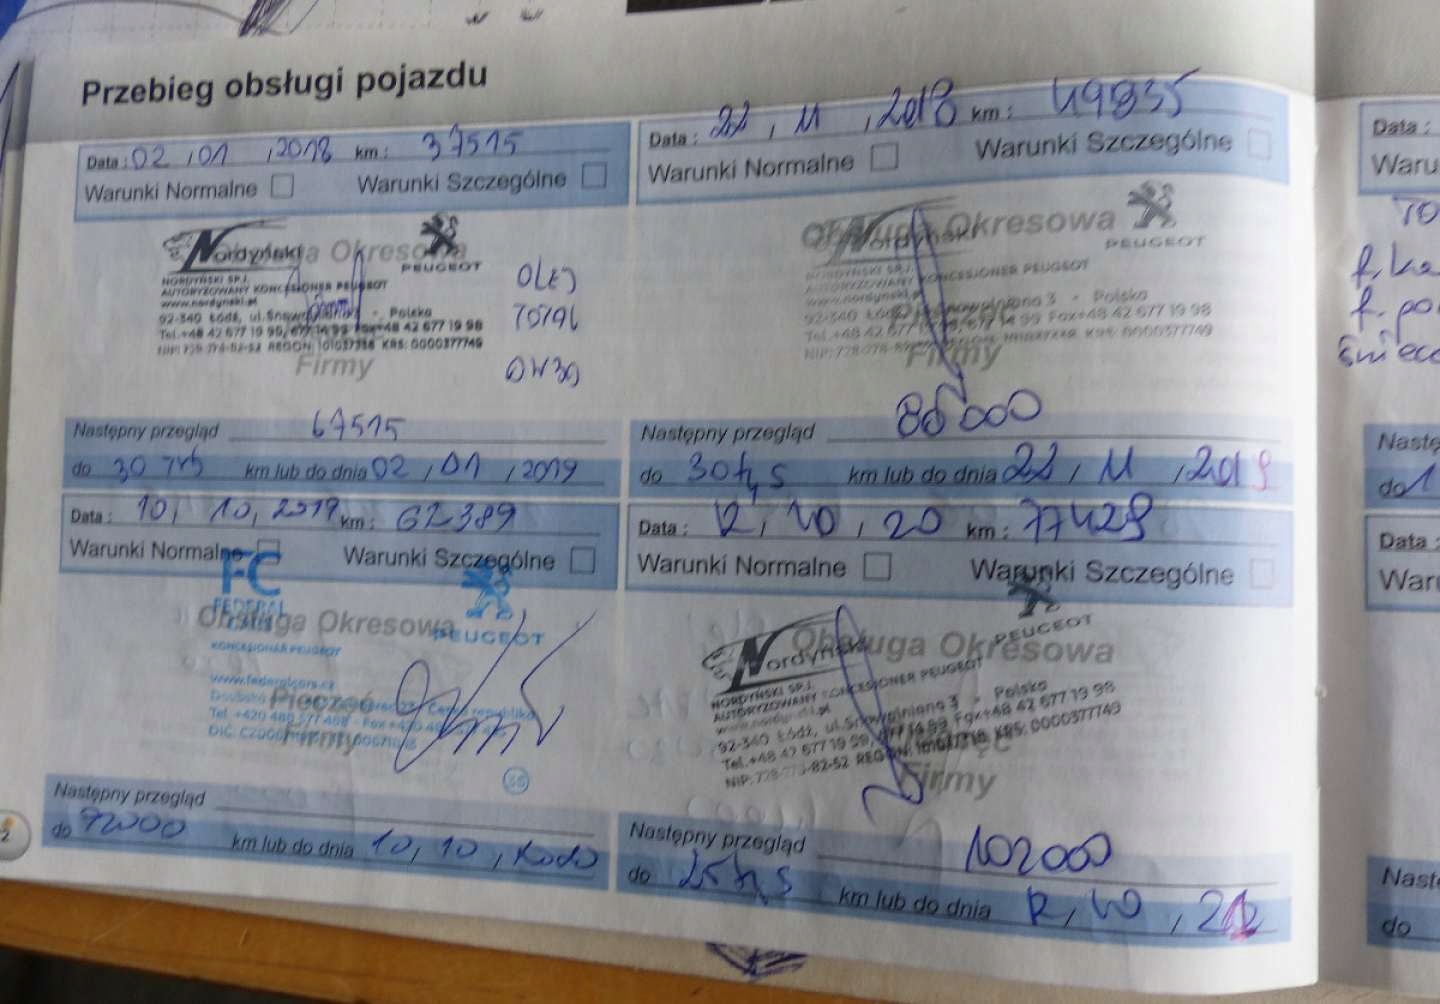 Przebieg obsługi pojazdu
Data : 02 , 01 , 2018 km : 37515
Warunki Normalne Warunki Szczególne
Nordyński
Obsługa Okresowa
PEUGEOT
NORDYŃSKI SP.J.
AUTORYZOWANY KONCESJONER PEUGEOT
www.nordynski.pl
92-340 Łódź, ul. - Polska
Tel.+48 42 677 19 99, 677 14 99 Fax+48 42 677 19 98
REGON: KRS: 0000377749
Firmy
OLEJ
TOTAL
0W30
Następny przegląd 67515
do 30 tys km lub do dnia 02 , 01 , 2019
Data : 22 , 11 , 2018 km : 49935
Warunki Normalne Warunki Szczególne
Nordyński
Obsługa Okresowa
PEUGEOT
NORDYŃSKI SP.J.
KONCESJONER PEUGEOT
www.nordynski.pl
92-340 3 - Polska
Tel.+48 42 677 19 99, 677 14 99 Fax+48 42 677 19 98
KRS: 0000377749
Firmy
Następny przegląd 80000
do 30tys km lub do dnia 22 , 11 , 2019
Data : 10, 10, 2019 km : 62389
Warunki Normalne Warunki Szczególne
FC
FEDERAL
CARS
Obsługa Okresowa
PEUGEOT
KONCESIONÁŘ PEUGEOT
www.federalcars.cz
Pieczęć
Firmy
Następny przegląd
do 92000 km lub do dnia 10, 10, 2020
Data : 12, 10, 20 km : 77429
Warunki Normalne Warunki Szczególne
Nordyński
Obsługa Okresowa
PEUGEOT
NORDYŃSKI SP.J.
AUTORYZOWANY KONCESJONER PEUGEOT
www.nordynski.pl
92-340 Łódź, ul. Śnowalniana 3 - Polska
Tel.+48 42 677 19 99, 677 14 99 Fax+48 42 677 19 98
REGON: KRS: 0000377749
Firmy
Następny przegląd 102000
do 25tys km lub do dnia 12, 10, 21
Data :
Waru
TO
f. ka
f. po
świec
Nastę
do 1
Data :
War
Nast
do
2